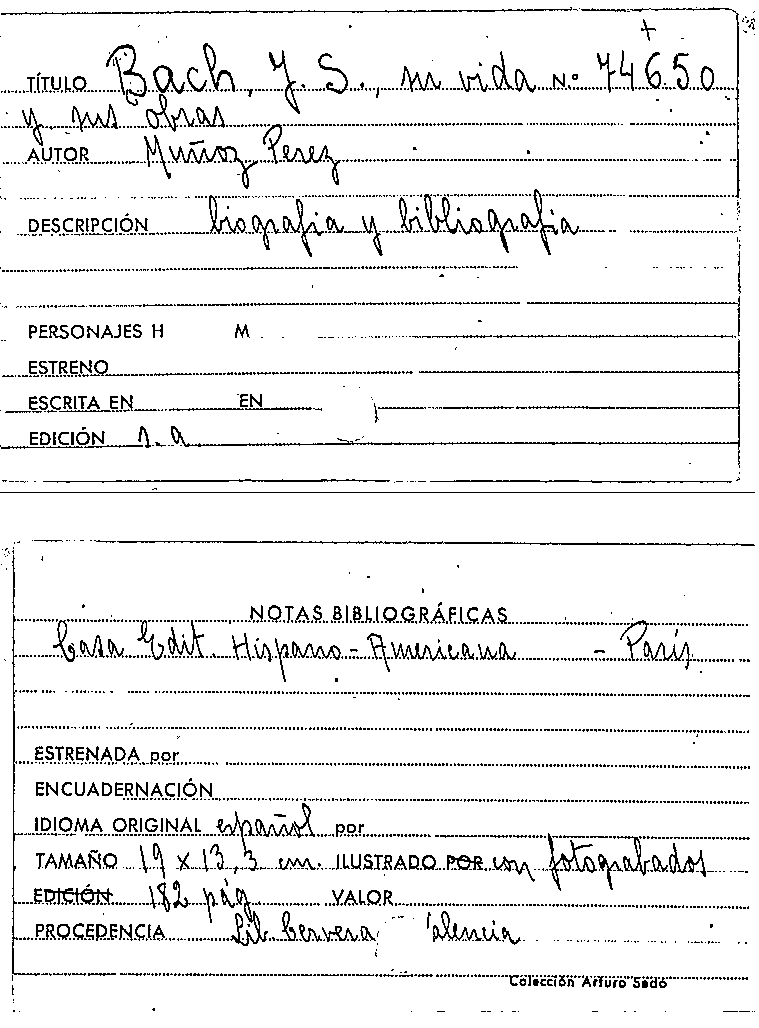 TÍTULO Bach, J. S., su vida N.º 74650
y sus obras
AUTOR Muñoz Perez
DESCRIPCIÓN biografia y bibliografia
PERSONAJES H M
ESTRENO
ESCRITA EN EN
EDICIÓN s. a.
NOTAS BIBLIOGRÁFICAS
Casa Edit. Hispano-Americana - París
ESTRENADA por
ENCUADERNACIÓN
IDIOMA ORIGINAL español por
TAMAÑO 19 x 13,3 cm. ILUSTRADO POR con fotograbados
EDICIÓN 182 pág VALOR
PROCEDENCIA Lib. Cervera alencia
Colección Arturo Sedó